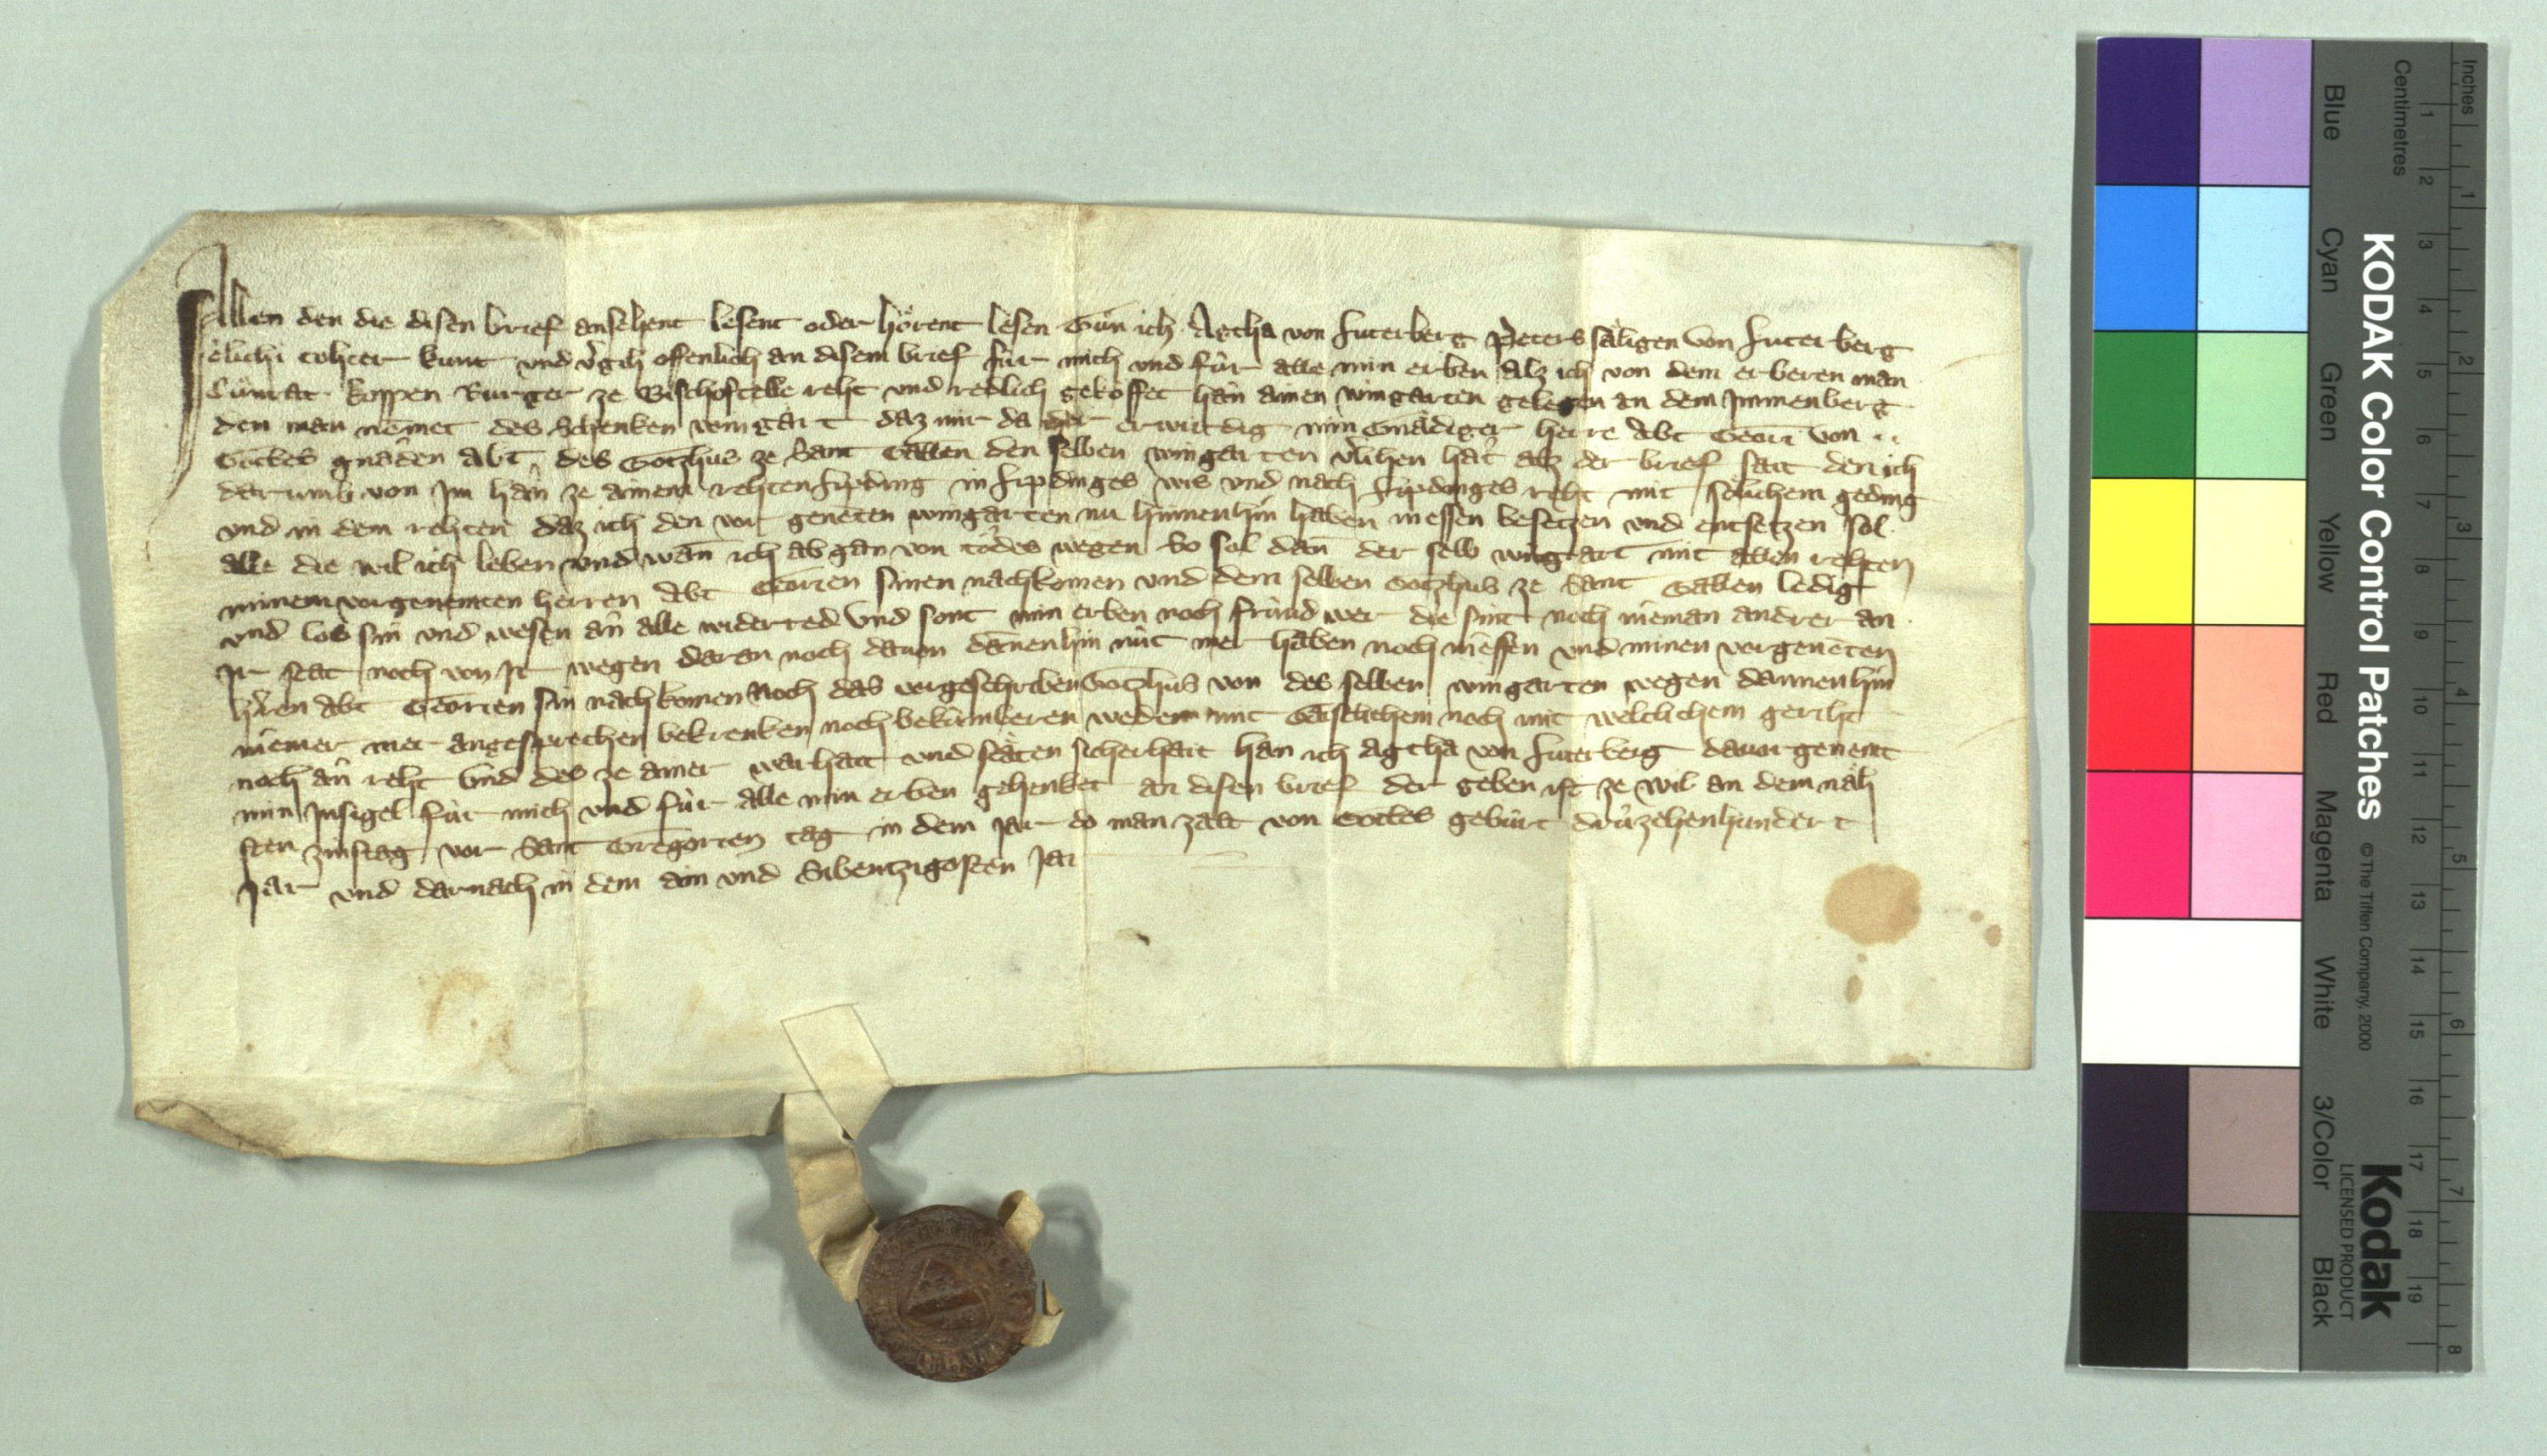 Allen den die disen brief ansehent lesent oder hörent lesen Tůn ich Agtha von Luterberg Peters säligen von Luterberg
elichi tohter kunt und vergih offenlich an disem brief für mich und für alle min erben Alz ich von dem erberen man
Cůnrat burger ze Bischofcelle reht und redlich geköffet hân ainen wingarten gelegen an dem Immenberg
den man nemet des Schenken wingart daz mir da der erwirdig min Gnädiger herre Abt Geori von
Gottes gnâden Abt des Gotzhus ze Sant Gallen den selben wingarten v̾lihen hât alz der brief sait den ich
darumb von im hân ze ainem rehten lipding in lipdinges wis und nach lipdinges reht mit sölichem geding
und in dem rehten daz ich den vor geneten wingarten nu hinnenhin haben niessen besetzen und entsetzen sol
alle die wil ich leben und wan̄ ich abgan von todes wegen So sol dan̄ der selb wingart mit allen rehten
minem vorgenemten herren Abt Georien sinen nachkomen und dem selben Gotzhus ze Sant Gallen ledig
und los sin und wesen ân alle widerred Und sont min erben noch fründ wer die sint noch nieman andrer an
ir stat noch von ir wegen daran noch davon dānenhin nüt mer haben noch niessen und minen vorgenēten
h̾ren Abt Georien sin nachkomen noch das vorgeschriben Gotzhus von des selben wingarten wegen dannenhin
niemer mer angesprechen bekrenken noch bekümberen weder mit Gaischlichem noch mit weltlichem geriht
noch ân reht Und des ze ainer warhait und stäten sicherhait han ich Agtha von Luterberg davorgenent
min Insigel für mich und für alle min erben gehenket an disen brief der geben ist ze Wil an dem näh
sten zinstag vor Sant Gregorien tag in dem jar do man zalt von Gottes gebürt drüzehenhundert
Jar und darnach in dem ain und Sibentzigosten Jar
Inches
Centimetres
1 2 3 4 5 6 7 8 9 10 11 12 13 14 15 16 17 18 19
1 2 3 4 5 6 7 8
KODAK Color Control Patches
© The Tiffen Company, 2000
Kodak
LICENSED PRODUCT
Blue Cyan Green Yellow Red Magenta White 3/Color Black